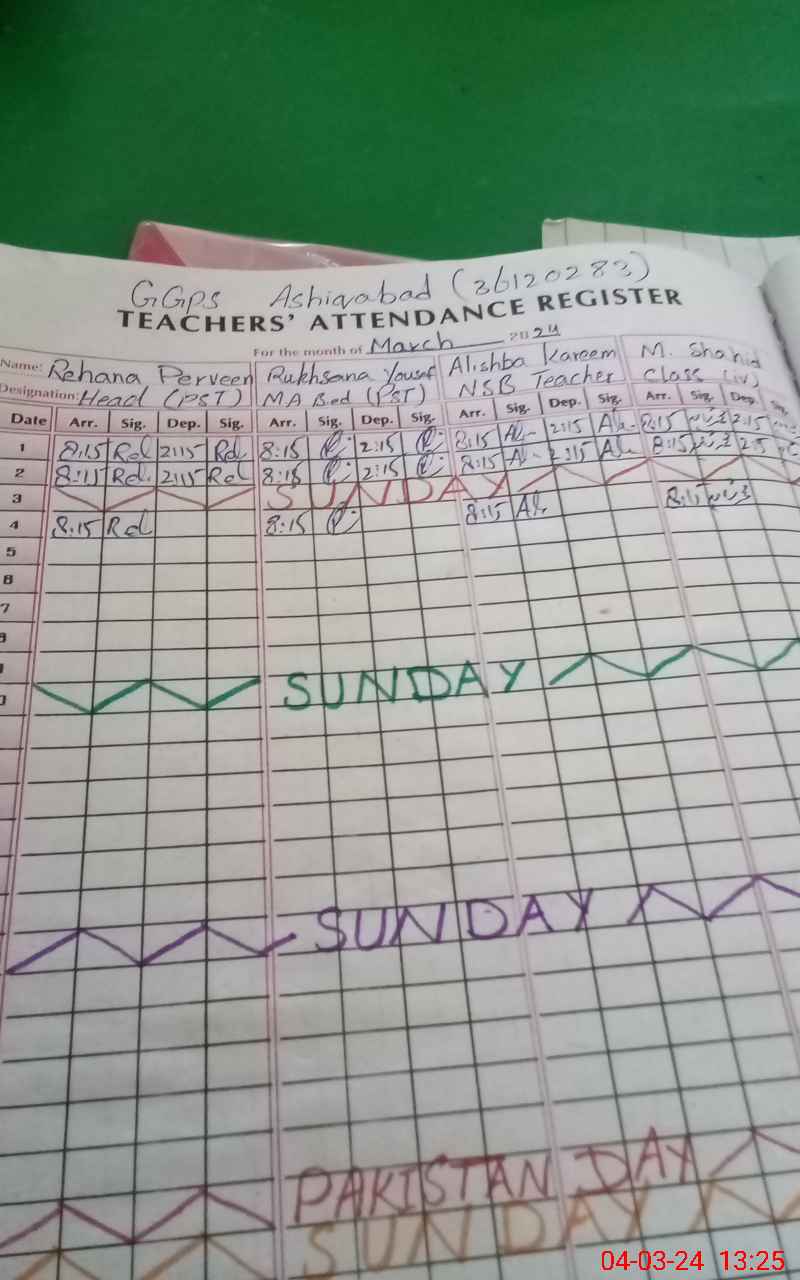 GGPS Ashiqabad (36120283)
TEACHERS' ATTENDANCE REGISTER
For the month of March 2024
Name: Rehana Perveen Rukhsana Yousaf Alishba Kareem M. Shahid
Designation: Head (PST) MA Bed (PST) NSB Teacher Class (iv)
Date Arr. Sig. Dep. Sig. Arr. Sig. Dep. Sig. Arr. Sig. Dep. Sig. Arr. Sig. Dep. Sig.
1 8:15 Rel 2:15 Rel 8:15 2:15 8:15 2:15 8:15 2:15
2 8:15 Rel 2:15 Rel 8:15 2:15 8:15 2:15 8:15 2:15
3 SUNDAY
4 8:15 Rel 8:15 8:15 8:15
5
6
7
SUNDAY
SUNDAY
PAKISTAN DAY
SUNDAY
04-03-24 13:25